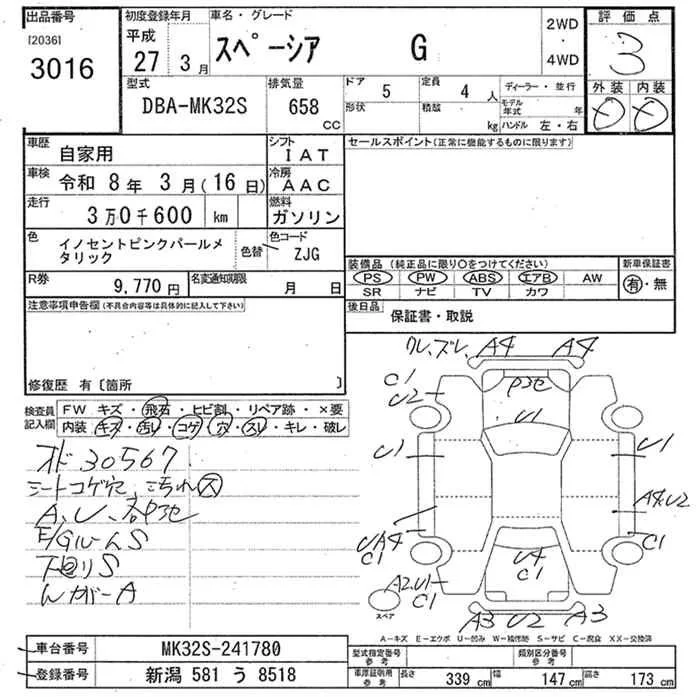 出品番号
[2036]
3016
初度登録年月
平成
27 3月
車名・グレード
スペーシア G
2WD
・
4WD
評価点
3
外装 内装
型式
DBA-MK32S
排気量
658 cc
ドア 5
形状
定員 4 人
積載 kg
ディーラー・並行
モデル年式 年
ハンドル 左・右
車歴 自家用
シフト IAT
車検 令和 8年 3月(16日)
冷房 AAC
走行 3万0千600 km
燃料 ガソリン
色 イノセントピンクパールメタリック
色替
色コード ZJG
R券 9,770円
名変通知期限 月 日
セールスポイント(正常に機能するものに限ります)
装備品(純正品に限り〇をつけてください)
PS PW ABS エアB AW
SR ナビ TV カワ
新車保証書
有・無
後日品 保証書・取説
注意事項申告欄(不具合内容等は具体的に記入して下さい)
修復歴 有〔箇所 〕
検査員記入欄
FW キズ・飛石・ヒビ割・リペア跡・×要
内装 キズ・汚レ・コゲ・穴・スレ・キレ・破レ
30567
シートコゲ穴、汚れ大
E/GルームS
下廻りS
ワレ、ズレ、A4 A4
C1
U2
U1
U1
U1
A4、U2
UA4
C1
U4
C1
C1
A2、U1
C1
スペア
A3 U2 A3
A―キズ E―エクボ U―凹み W―補修跡 S―サビ C―腐食 XX―交換済
車台番号 MK32S-241780
登録番号 新潟 581 う 8518
型式指定番号 参考
類別区分番号 参考
車庫証明用 参考
長さ 339 cm
幅 147 cm
高さ 173 cm